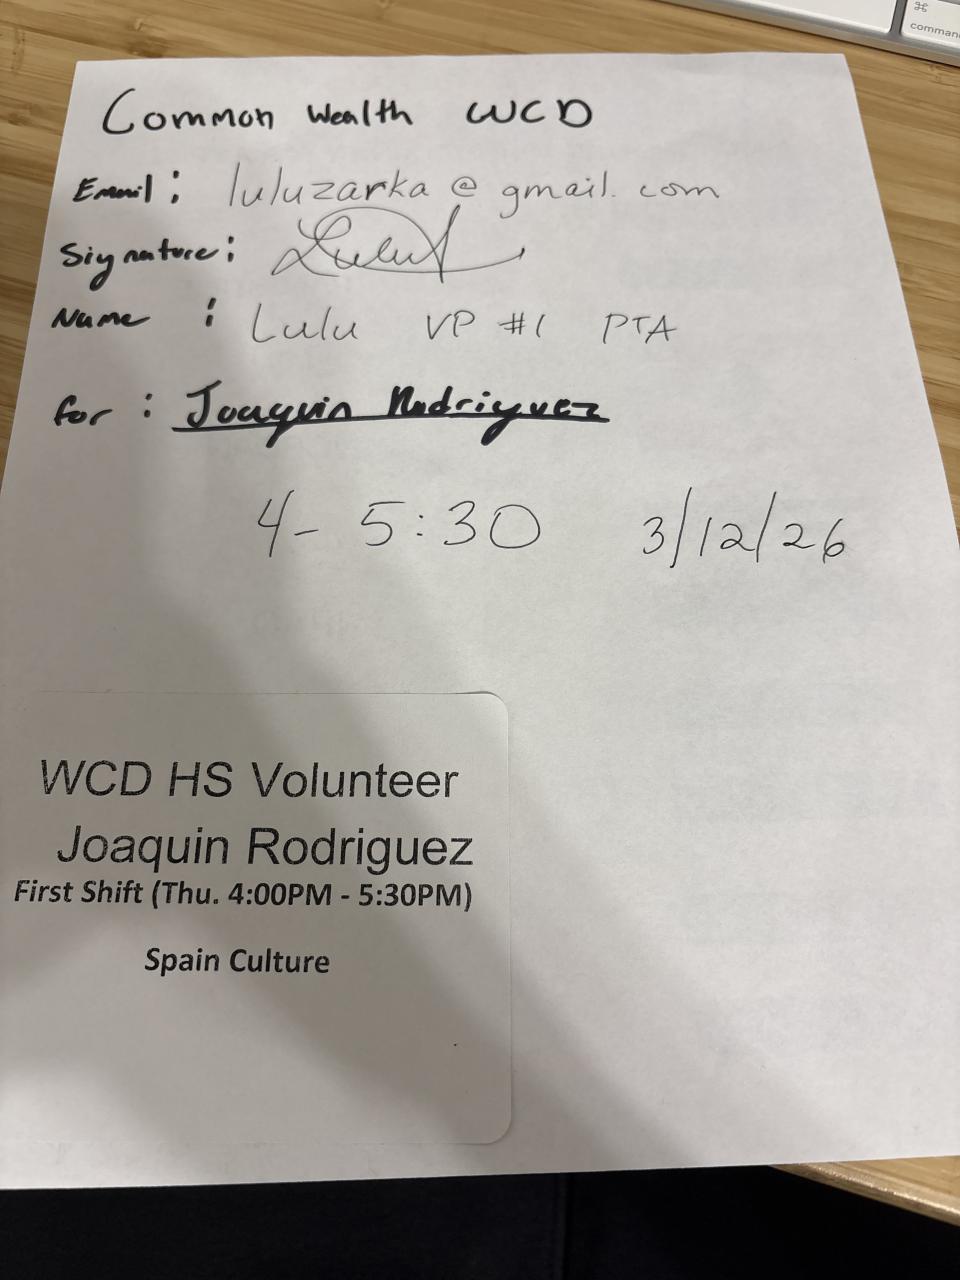 command
Common Wealth WCD
Email: luluzarka@gmail.com
Signature: Lulu
Name : Lulu VP #1 PTA
for : Joaquin Rodriguez
4- 5:30 3/12/26
WCD HS Volunteer
Joaquin Rodriguez
First Shift (Thu. 4:00PM - 5:30PM)
Spain Culture